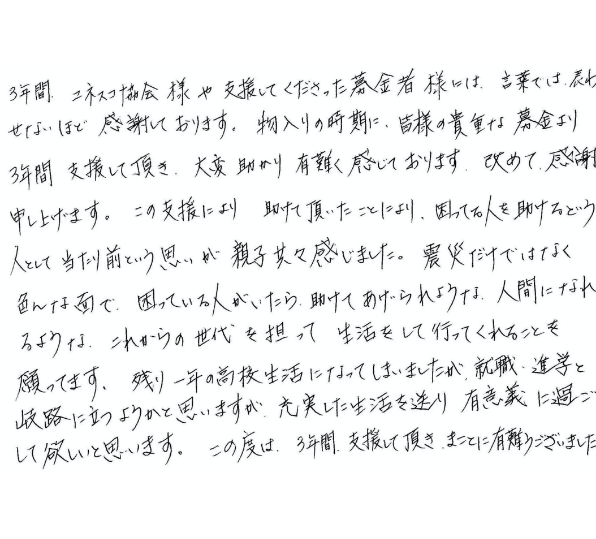 3年間、ユネスコ協会様や支援してくださった募金者様には、言葉では、表わ
せないほど感謝しております。物入りの時期に、皆様の貴重な募金より
3年間支援して頂き、大変助かり有難く感じております。改めて、感謝
申し上げます。この支援により 助けて頂いたことにより、困ってる人を助けるという
人として当たり前という思いが親子共々感じました。震災だけではなく
色んな面で、困っている人がいたら、助けてあげられような、人間になれ
るような、これからの世代を担って 生活をして行ってくれることを
願ってます。残り一年の高校生活になってしまいましたが、就職・進学と
岐路に立つようかと思いますが、充実した生活を送り有意義に過ご
して欲しいと思います。この度は、3年間、支援して頂き、まことに有難うございました